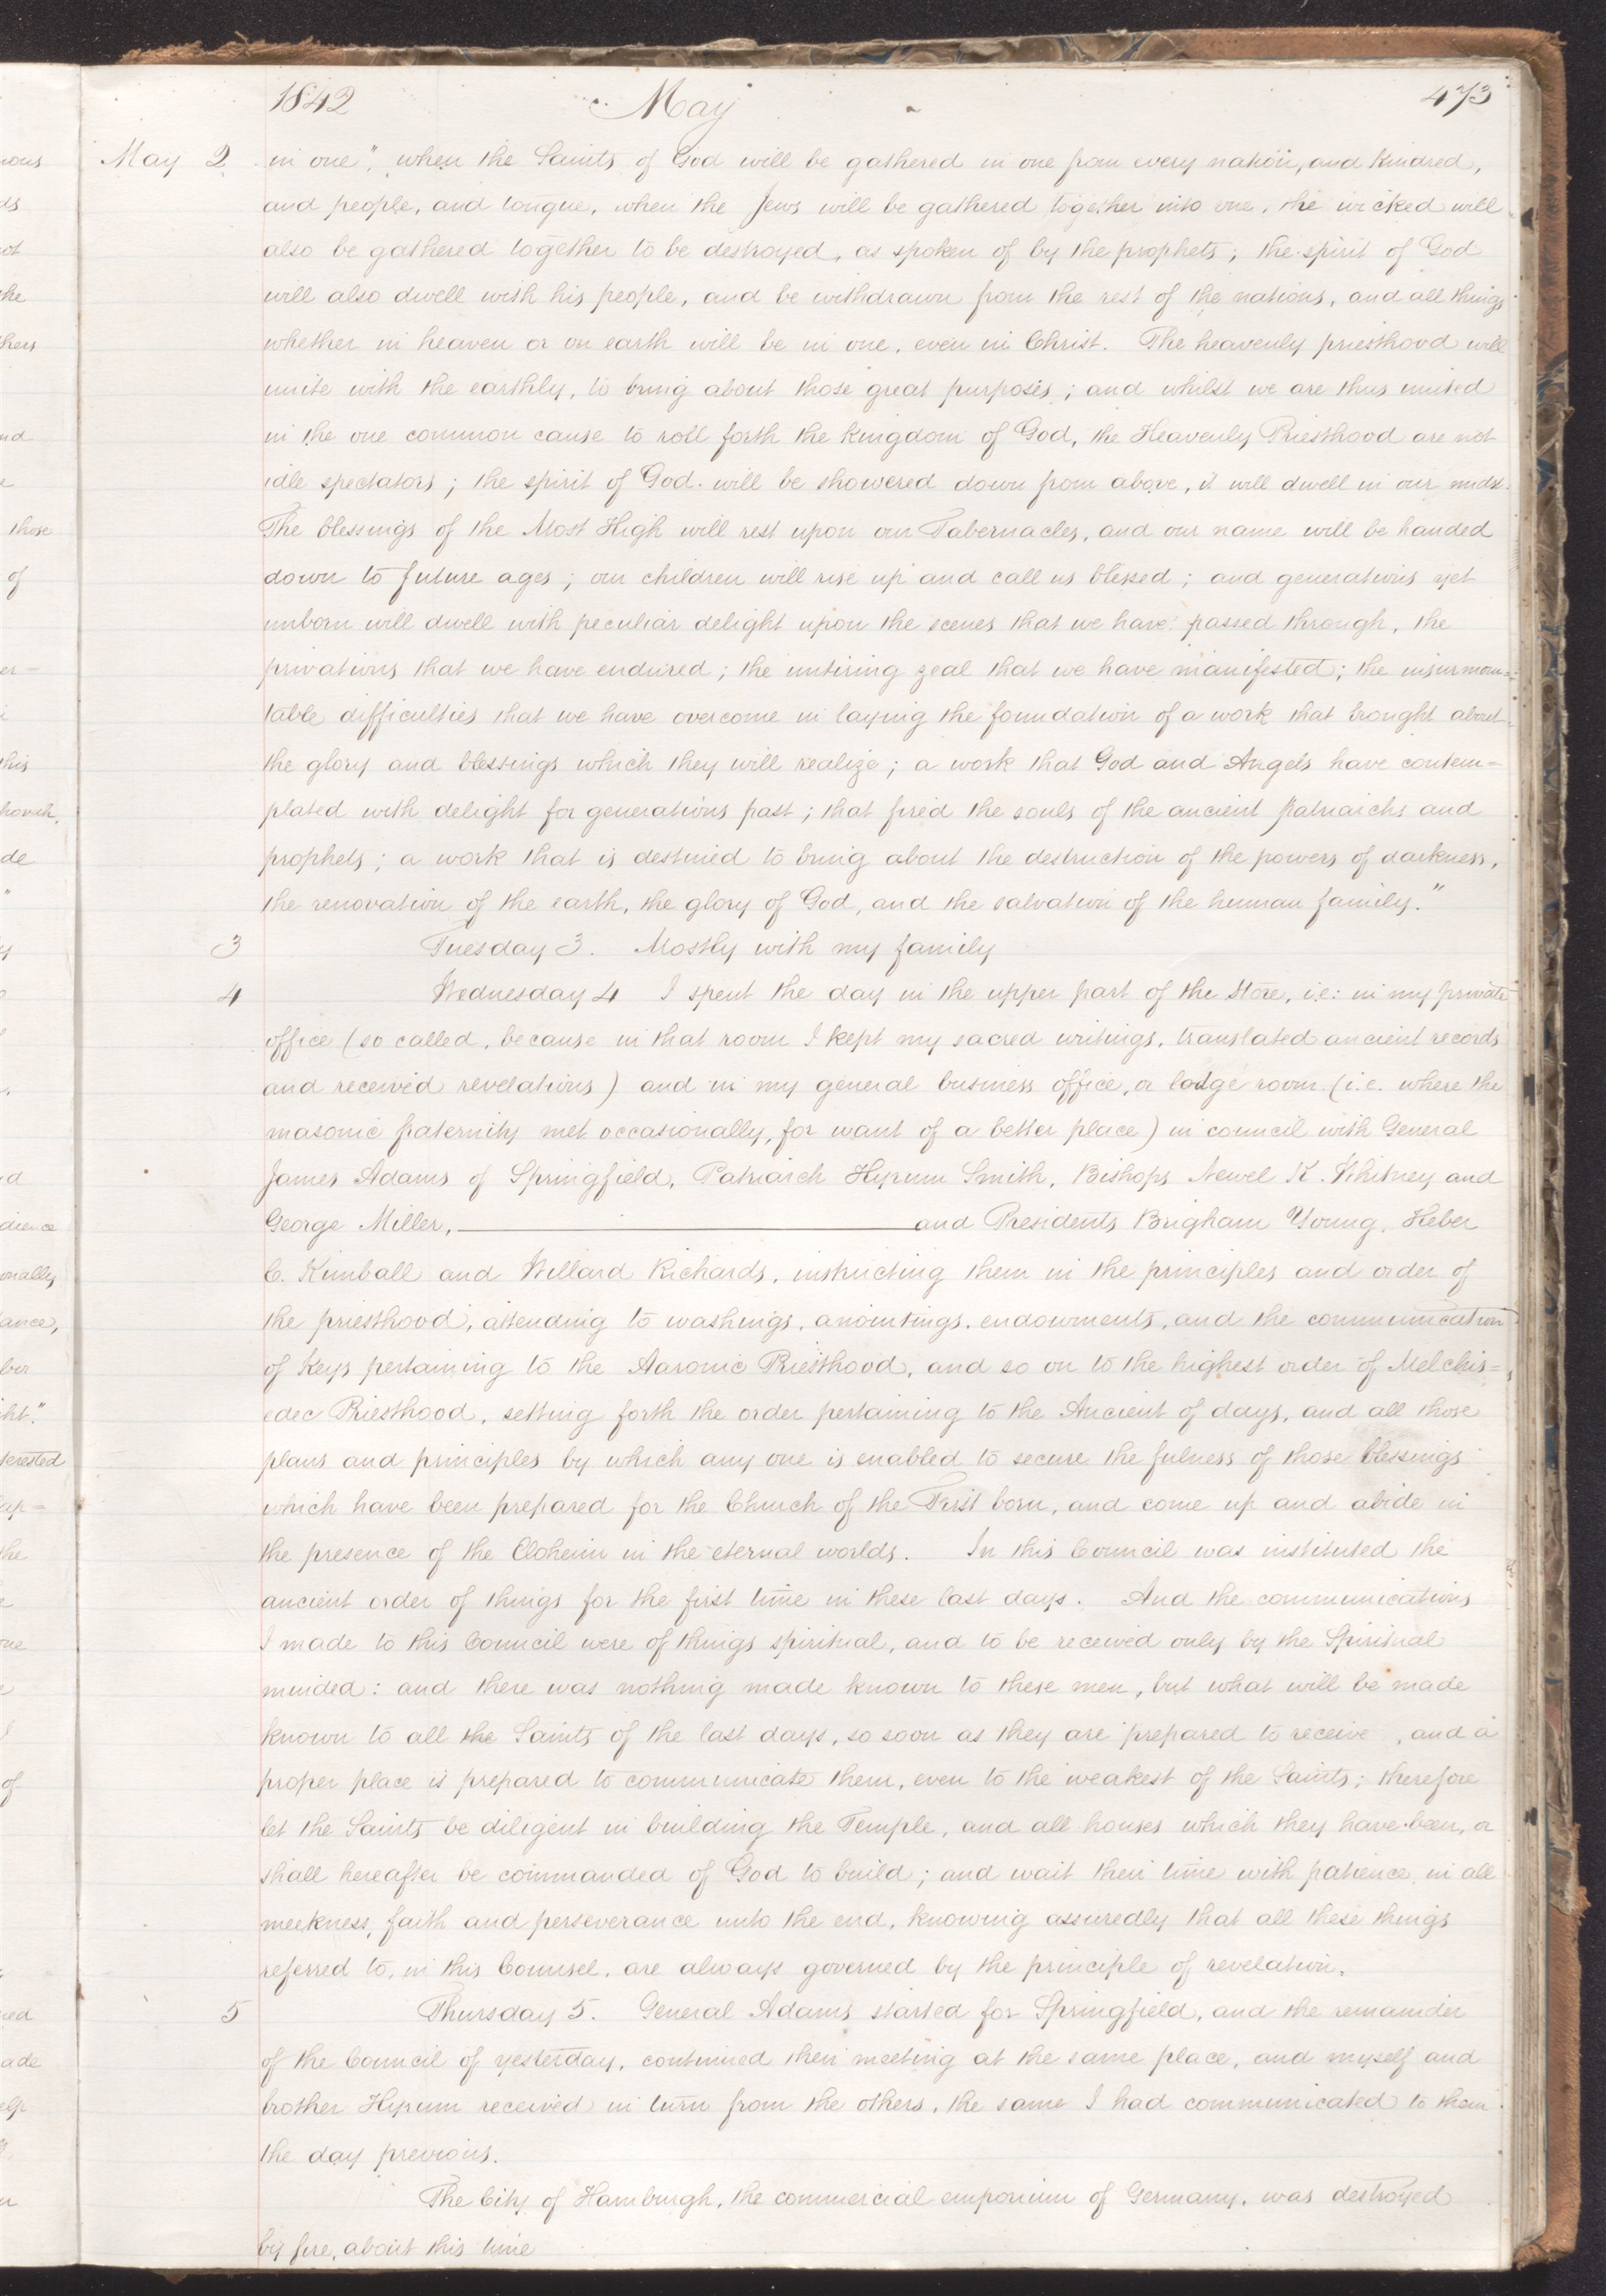 1842 May 473
May 2 in one", when the Saints of God will be gathered in one from every nation, and kindred,
and people, and tongue, when the Jews will be gathered together into one, the wicked will
also be gathered together to be destroyed, as spoken of by the prophets; the spirit of God
will also dwell with his people, and be withdrawn from the rest of the nations, and all things
whether in heaven or on earth will be in one, even in Christ. The heavenly priesthood will
unite with the earthly, to bring about those great purposes; and whilst we are thus united
in the one common cause to roll forth the kingdom of God, the Heavenly Priesthood are not
idle spectators; the spirit of God will be showered down from above, it will dwell in our midst.
The blessings of the Most High will rest upon our Tabernacles, and our name will be handed
down to future ages; our children will rise up and call us blessed; and generations yet
unborn will dwell with peculiar delight upon the scenes that we have passed through, the
privations that we have endured; the untiring zeal that we have manifested; the insurmoun=
table difficulties that we have overcome in laying the foundation of a work that brought about
the glory and blessings which they will realize; a work that God and Angels have contem=
plated with delight for generations past; that fired the souls of the ancient patriarchs and
prophets; a work that is destined to bring about the destruction of the powers of darkness,
the renovation of the earth, the glory of God, and the salvation of the human family."
3 Tuesday 3. Mostly with my family
4 Wednesday 4 I spent the day in the upper part of the Store, i.e: in my private
office (so called, because in that room I kept my sacred writings, translated ancient records
and received revelations) and in my general business office, or lodge room (i.e. where the
masonic fraternity met occasionally, for want of a better place) in council with General
James Adams of Springfield, Patriarch Hyrum Smith, Bishops Newel K. Whitney and
George Miller, and Presidents Brigham Young, Heber
C. Kimball and Willard Richards, instructing them in the principles and order of
the priesthood, attending to washings, anointings, endowments, and the communication
of keys pertaining to the Aaronic Priesthood, and so on to the highest order of Melchis=
edec Priesthood, setting forth the order pertaining to the Ancient of days, and all those
plans and principles by which any one is enabled to secure the fulness of those blessings
which have been prepared for the Church of the First born, and come up and abide in
the presence of the Eloheim in the eternal worlds. In this Council was instituted the
ancient order of things for the first time in these last days. And the communications
I made to this Council were of things spiritual, and to be received only by the Spiritual
minded: and there was nothing made known to these men, but what will be made
known to all the Saints of the last days, so soon as they are prepared to receive, and a
proper place is prepared to communicate them, even to the weakest of the Saints; therefore
let the Saints be diligent in building the Temple, and all houses which they have been, or
shall hereafter be commanded of God to build; and wait their time with patience, in all
meekness, faith and perseverance unto the end, knowing assuredly that all these things
referred to, in this Counsel, are always governed by the principle of revelation.
5 Thursday 5. General Adams started for Springfield, and the remainder
of the Council of yesterday, continued their meeting at the same place, and myself and
brother Hyrum received in turn from the others, the same I had communicated to them
the day previous.
The City of Hamburgh, the commercial emporium of Germany, was destroyed
by fire, about this time